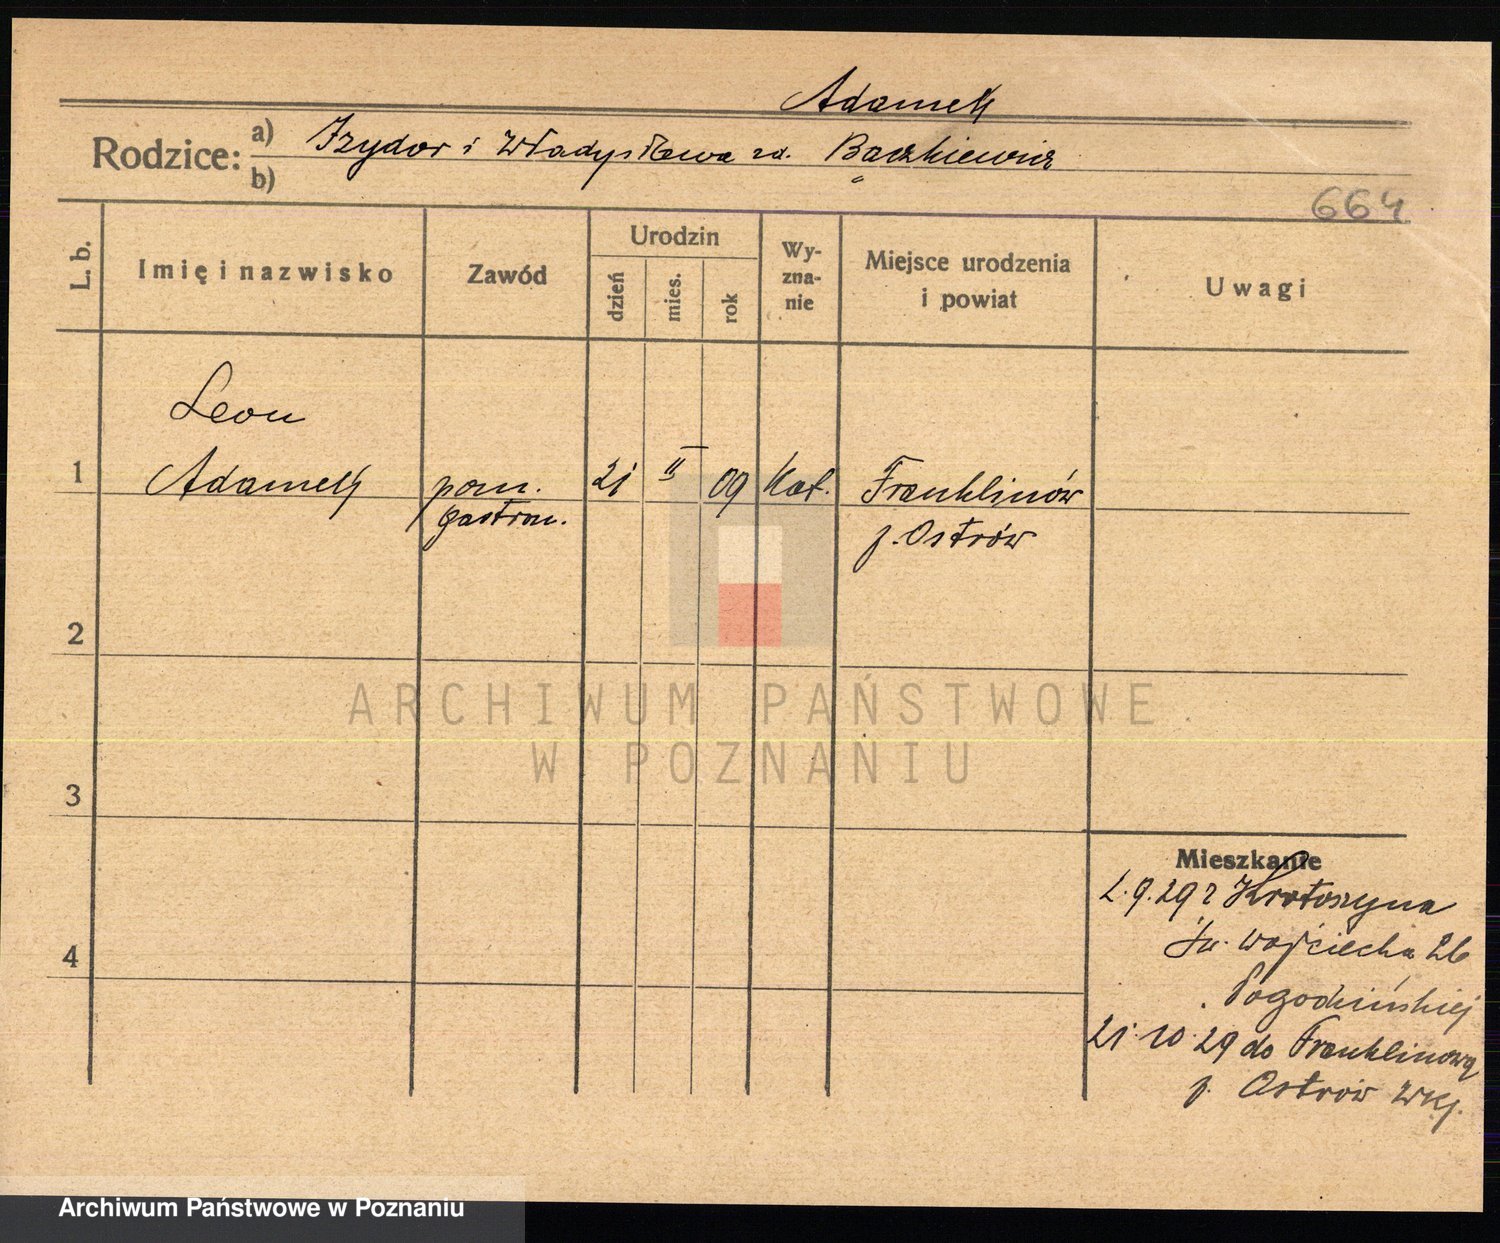 Adamek
Rodzice: a) Izydor i Władysława zd. Baczkiewicz
b)
664
L. b.
Imię i nazwisko
Zawód
Urodzin
dzień
mies.
rok
Wy-
zna-
nie
Miejsce urodzenia
i powiat
Uwagi
Leon
1 Adamek pom. 21 II 09 Kat. Franklinów
gastron. p. Ostrów
2
3
4
ARCHIWUM PAŃSTWOWE
W POZNANIU
Mieszkanie
2.9.29 z Krotoszyna
Św. Wojciecha 26
Pogodzińskiej
21.10.29 do Franklinowa
p. Ostrów Wkp.
Archiwum Państwowe w Poznaniu